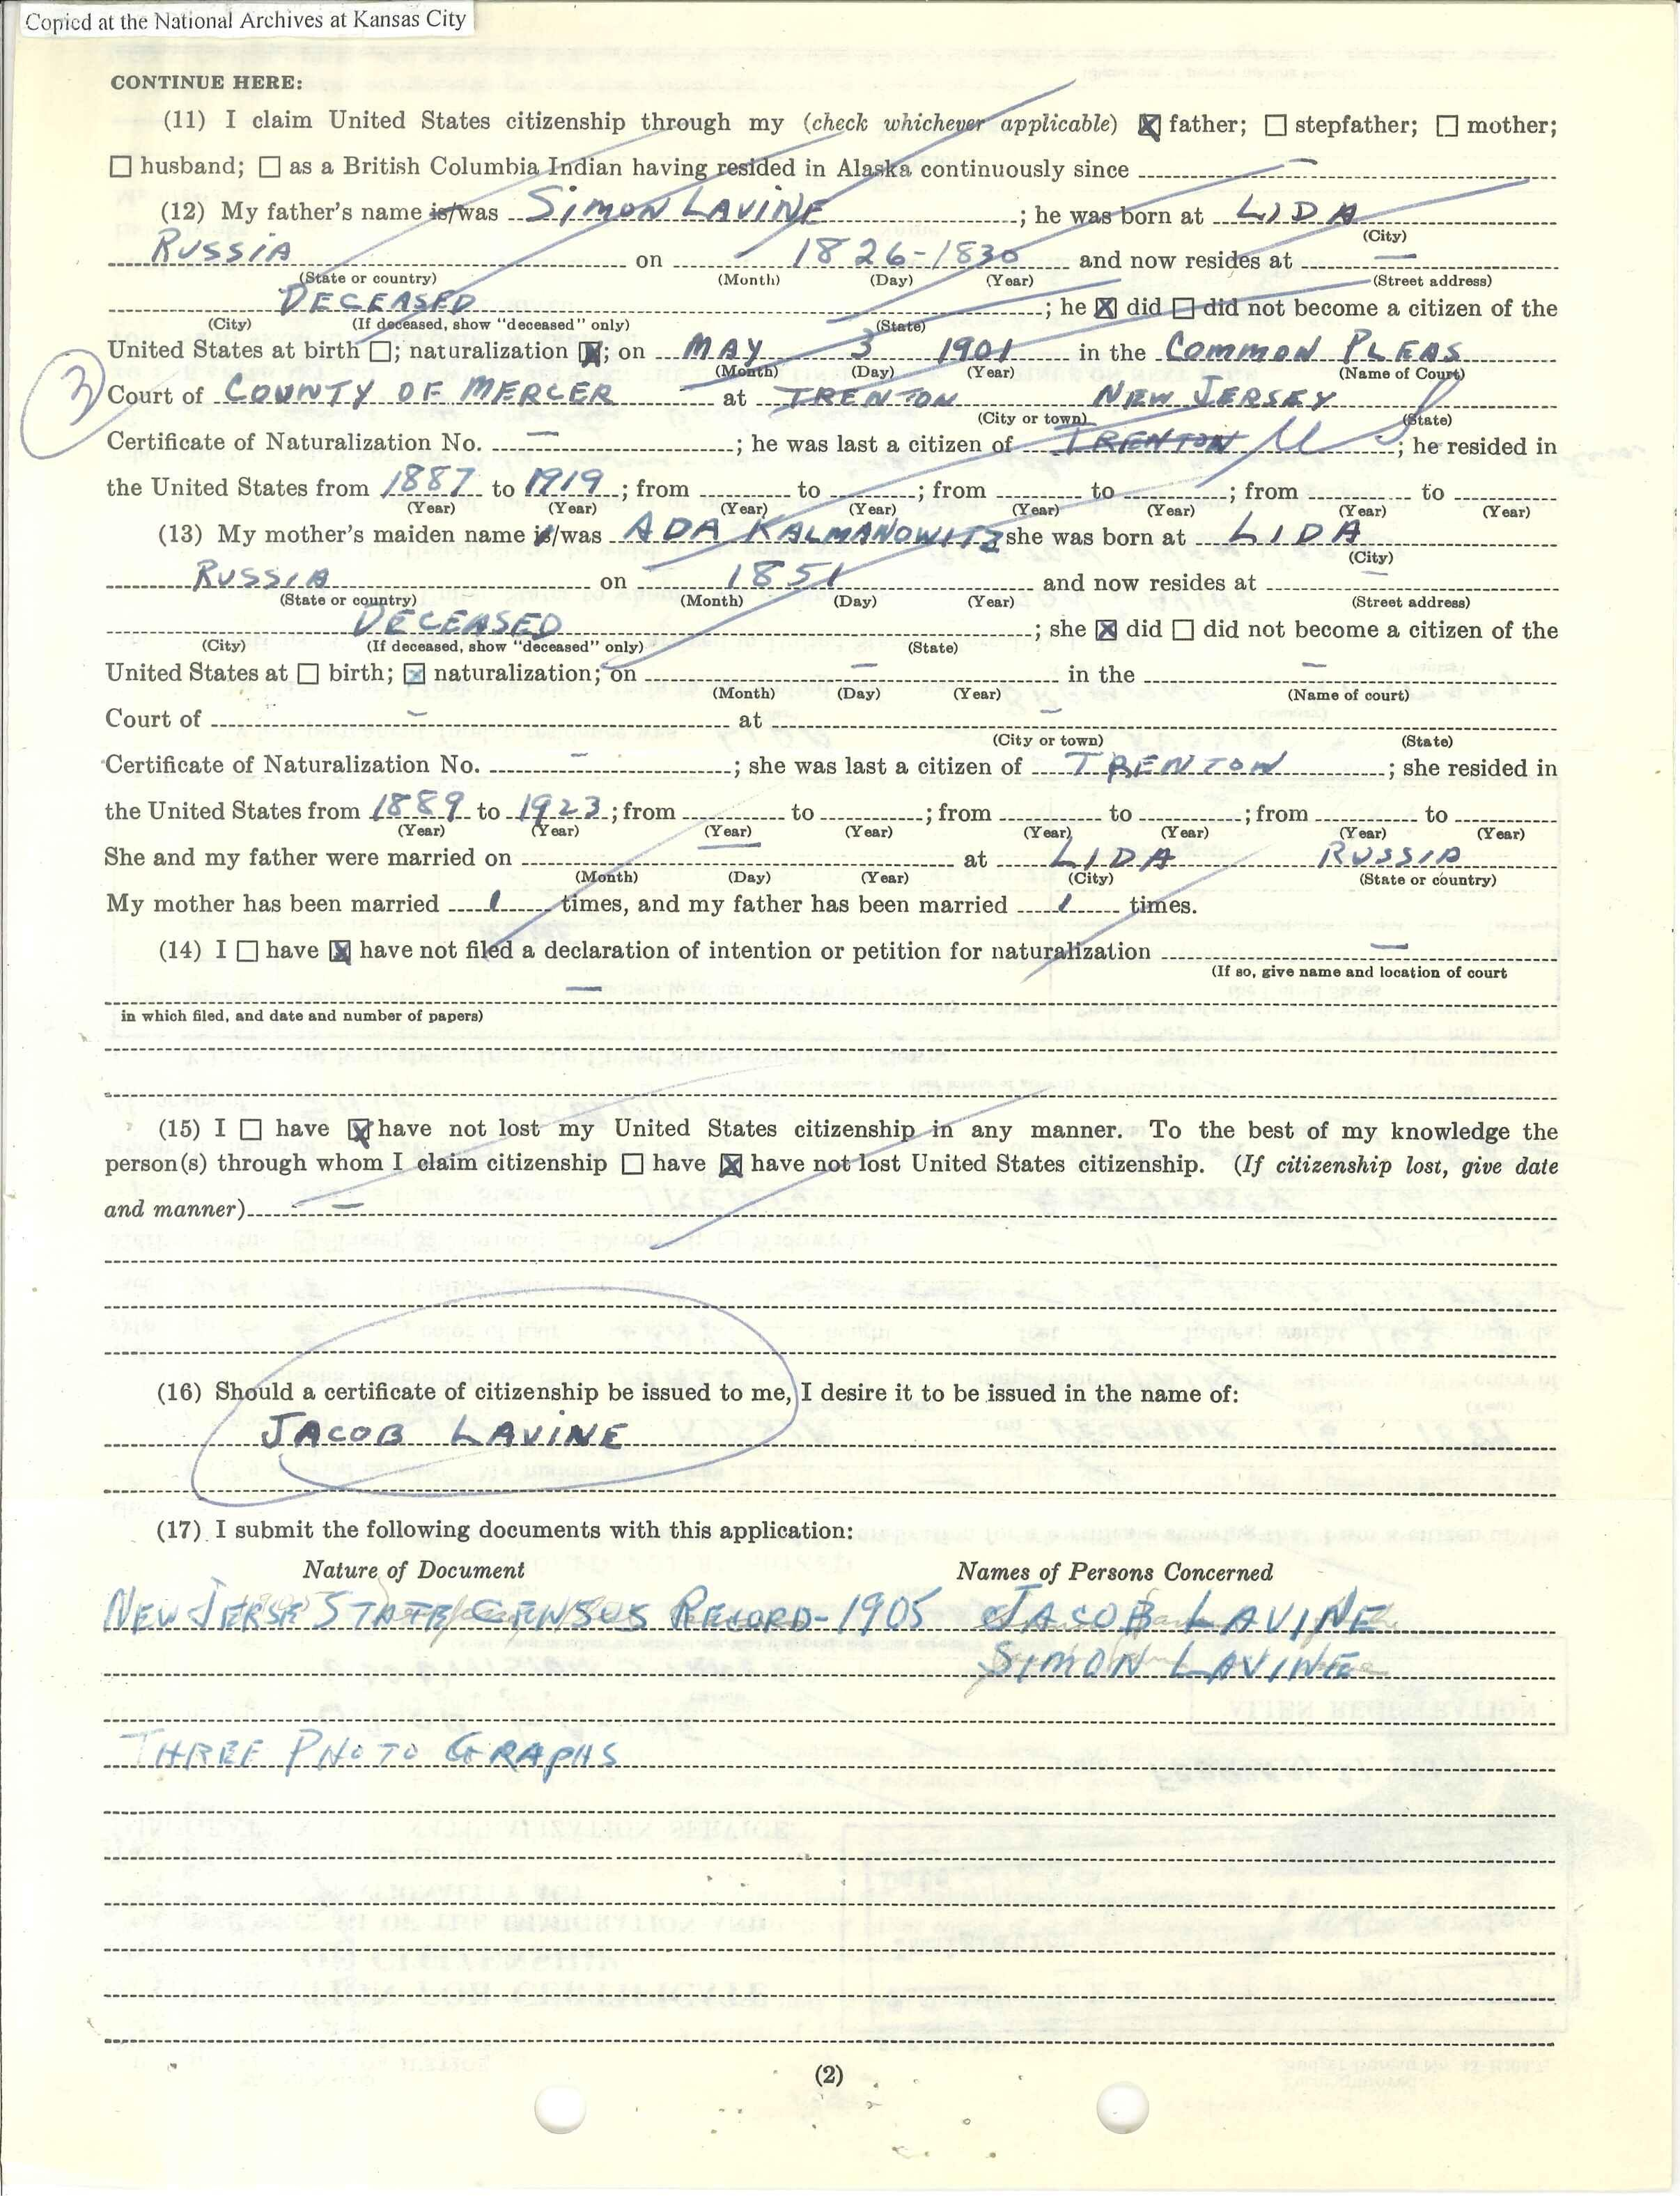 Copied at the National Archives at Kansas City
CONTINUE HERE:
(11) I claim United States citizenship through my (check whichever applicable) ☒ father; ☐ stepfather; ☐ mother;
☐ husband; ☐ as a British Columbia Indian having resided in Alaska continuously since —
(12) My father's name is/was SIMON LAVINE; he was born at LIDA
(City)
RUSSIA on 1826-1830 and now resides at —
(State or country) (Month) (Day) (Year) (Street address)
DECEASED; he ☒ did ☐ did not become a citizen of the
(City) (If deceased, show "deceased" only) (State)
United States at birth ☐; naturalization ☒; on MAY 3 1901 in the COMMON PLEAS
(Month) (Day) (Year) (Name of Court)
3
Court of COUNTY OF MERCER at TRENTON NEW JERSEY
(City or town) (State)
Certificate of Naturalization No. —; he was last a citizen of TRENTON; he resided in
the United States from 1887 to 1919; from to; from to; from to
(Year) (Year) (Year) (Year) (Year) (Year) (Year) (Year)
(13) My mother's maiden name is/was ADA KALMANOWITZ she was born at LIDA
(City)
RUSSIA on 1851 and now resides at —
(State or country) (Month) (Day) (Year) (Street address)
DECEASED; she ☒ did ☐ did not become a citizen of the
(City) (If deceased, show "deceased" only) (State)
United States at ☐ birth; ☒ naturalization; on — in the —
(Month) (Day) (Year) (Name of court)
Court of — at —
(City or town) (State)
Certificate of Naturalization No. —; she was last a citizen of TRENTON; she resided in
the United States from 1889 to 1923; from to; from to; from to
(Year) (Year) (Year) (Year) (Year) (Year) (Year) (Year)
She and my father were married on — at LIDA RUSSIA
(Month) (Day) (Year) (City) (State or country)
My mother has been married 1 times, and my father has been married 1 times.
(14) I ☐ have ☒ have not filed a declaration of intention or petition for naturalization —
(If so, give name and location of court
—
in which filed, and date and number of papers)
(15) I ☐ have ☒ have not lost my United States citizenship in any manner. To the best of my knowledge the
person(s) through whom I claim citizenship ☐ have ☒ have not lost United States citizenship. (If citizenship lost, give date
and manner) —
(16) Should a certificate of citizenship be issued to me, I desire it to be issued in the name of:
JACOB LAVINE
(17) I submit the following documents with this application:
Nature of Document Names of Persons Concerned
NEW JERSE STATE CENSUS RECORD-1905 JACOB LAVINE
SIMON LAVINE
THREE PHOTO GRAPHS
(2)